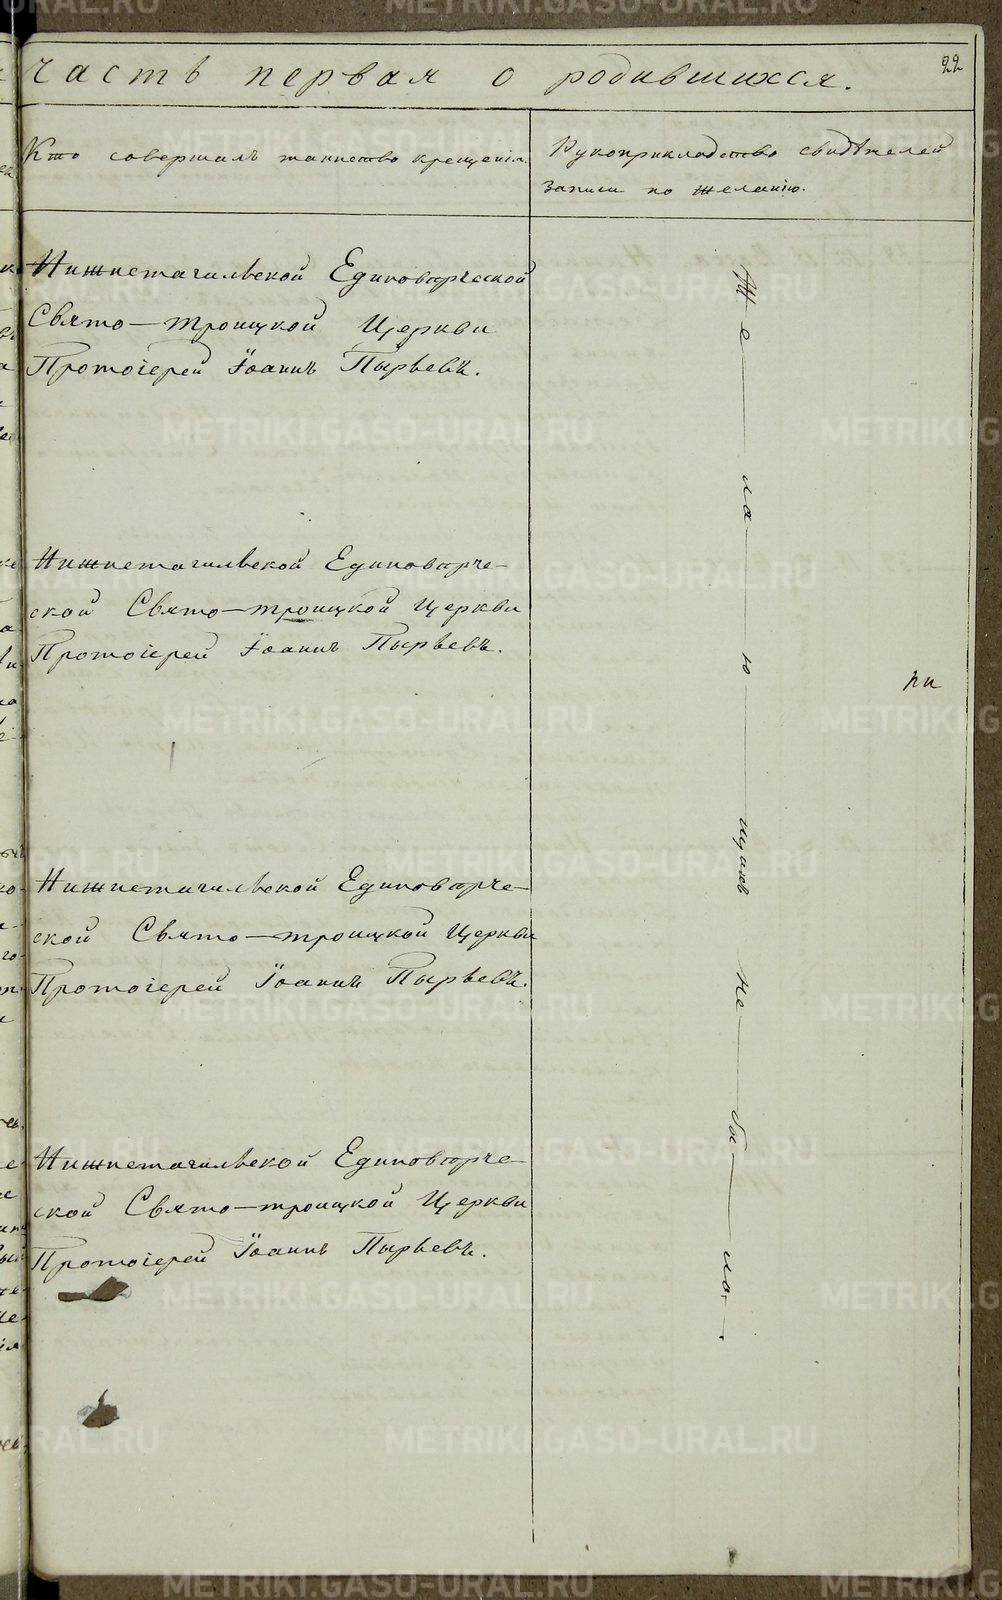 22
часть первая о родившихся.
Кто совершалъ таинство крещенія.
Рукоприкладство свидѣтелей
записи по желанію.
Нижнетагильской Единовѣрческой
Свято-Троицкой Церкви
Протоіерей Іоаннъ Пырьевъ.
Нижнетагильской Единовѣрче-
ской Свято-троицкой Церкви
Протоіерей Іоаннъ Пырьевъ.
Нижнетагильской Единовѣрче-
ской Свято-троицкой Церкви
Протоіерей Іоаннъ Пырьевъ.
Нижнетагильской Единовѣрче-
ской Свято-троицкой Церкви
Протоіерей Іоаннъ Пырьевъ.
Же-ла-ю-щихъ не-бы-ло.
METRIKI.GASO-URAL.RU